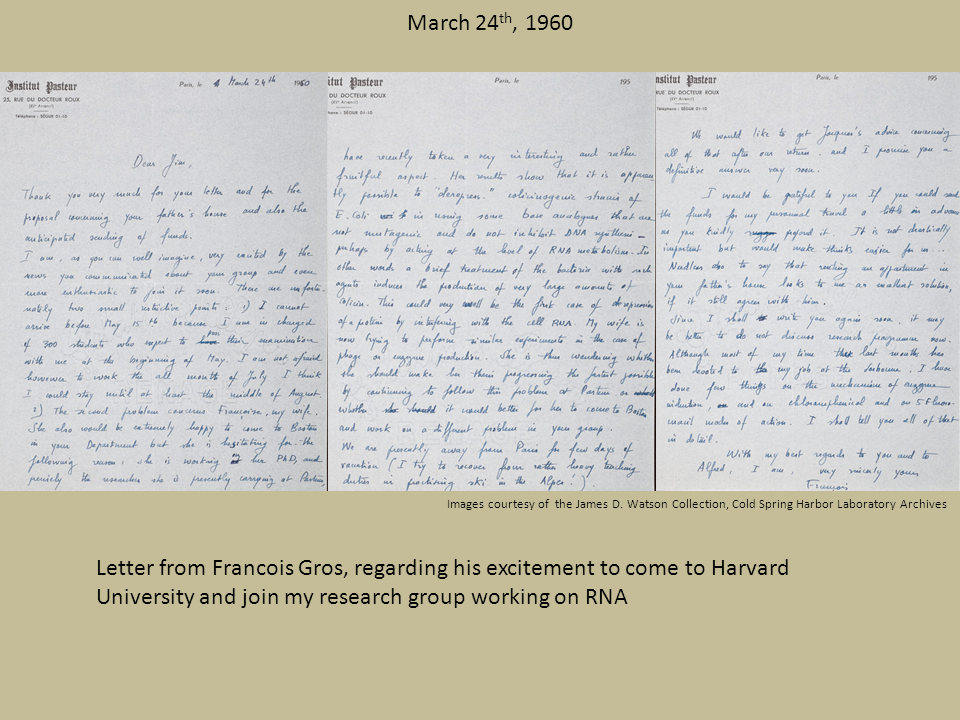 March 24th, 1960
Institut Pasteur
25, RUE DU DOCTEUR ROUX
(XVe Arrondt)
Téléphone : SÉGUR 01-10
Paris, le March 24th 1960
Dear Jim,
Thank you very much for your letter and for the
proposal concerning your father's house and also the
anticipated sending of funds.
I am, as you can well imagine, very excited by the
news you communicated about your group and even
more enthusiastic to join it soon. There are unfortu-
nately two small restrictive points : 1) I cannot
arrive before May 15th because I am in charged
of 300 students who expect to pass their examination
with me at the beginning of May. I am not afraid
however to work the all month of July I think
I could stay until at least the middle of August
2) The second problem concerns Françoise, my wife.
She also would be extremely happy to come to Boston
in your Department but she is hesitating for the
following reason : she is working on her PhD, and
precisely the researches she is presently carrying at Pasteur
titut Pasteur
DU DOCTEUR ROUX
(XVe Arrondt)
hone : SÉGUR 01-10
Paris, le 195
have recently taken a very interesting and rather
fruitful aspect. Her results show that it is apparen
tly possible to "derepress" colicinogenic strains of
E. Coli in using some base analogues that are
not mutagenic and do not inhibit DNA synthesis -
perhaps by acting at the level of RNA metabolism. In
other words a brief treatment of the bacteria with such
agents induces the production of very large amounts of
colicin. This could very well be the first case of derepression
of a protein by interfering with the cell RNA. My wife is
now trying to perform similar experiments in the case of
phage or enzyme production. She is thus wondering whether
she should make her thesis progressing the fastest possible
by continuing to follow this problem at Pasteur or
whether it would better for her to come to Boston
and work on a different problem in your group.
We are presently away from Paris for few days of
vacation (I try to recover from rather heavy teaching
duties in practising ski in the Alpes!).
stitut Pasteur
RUE DU DOCTEUR ROUX
(XVe Arrondt)
léphone : SÉGUR 01-10
Paris, le 195
We would like to get Jacques's advice concerning
all of that after our return. and I promise you a
definitive answer very soon.
I would be grateful to you If you could send
the funds for my personal travel a little in advance
as you kindly propos it. It is not drastically
important but would make thinks easier for us...
Needless also to say that renting an appartment in
your father's house looks to me an excellent solution,
if it still agrees with him.
Since I shall write you again soon it may
be better to do not discuss research programme now.
Although most of my time last months has
been devoted to my job at the Sorbonne, I have
done few things on the mechanism of enzyme
induction, and on chloramphenicol and on 5 Fluoro-
uracil modes of action. I shall tell you all of that
in detail.
With my best regards to you and to
Alfred, I am, very sincerly yours
François
Images courtesy of the James D. Watson Collection, Cold Spring Harbor Laboratory Archives
Letter from Francois Gros, regarding his excitement to come to Harvard
University and join my research group working on RNA